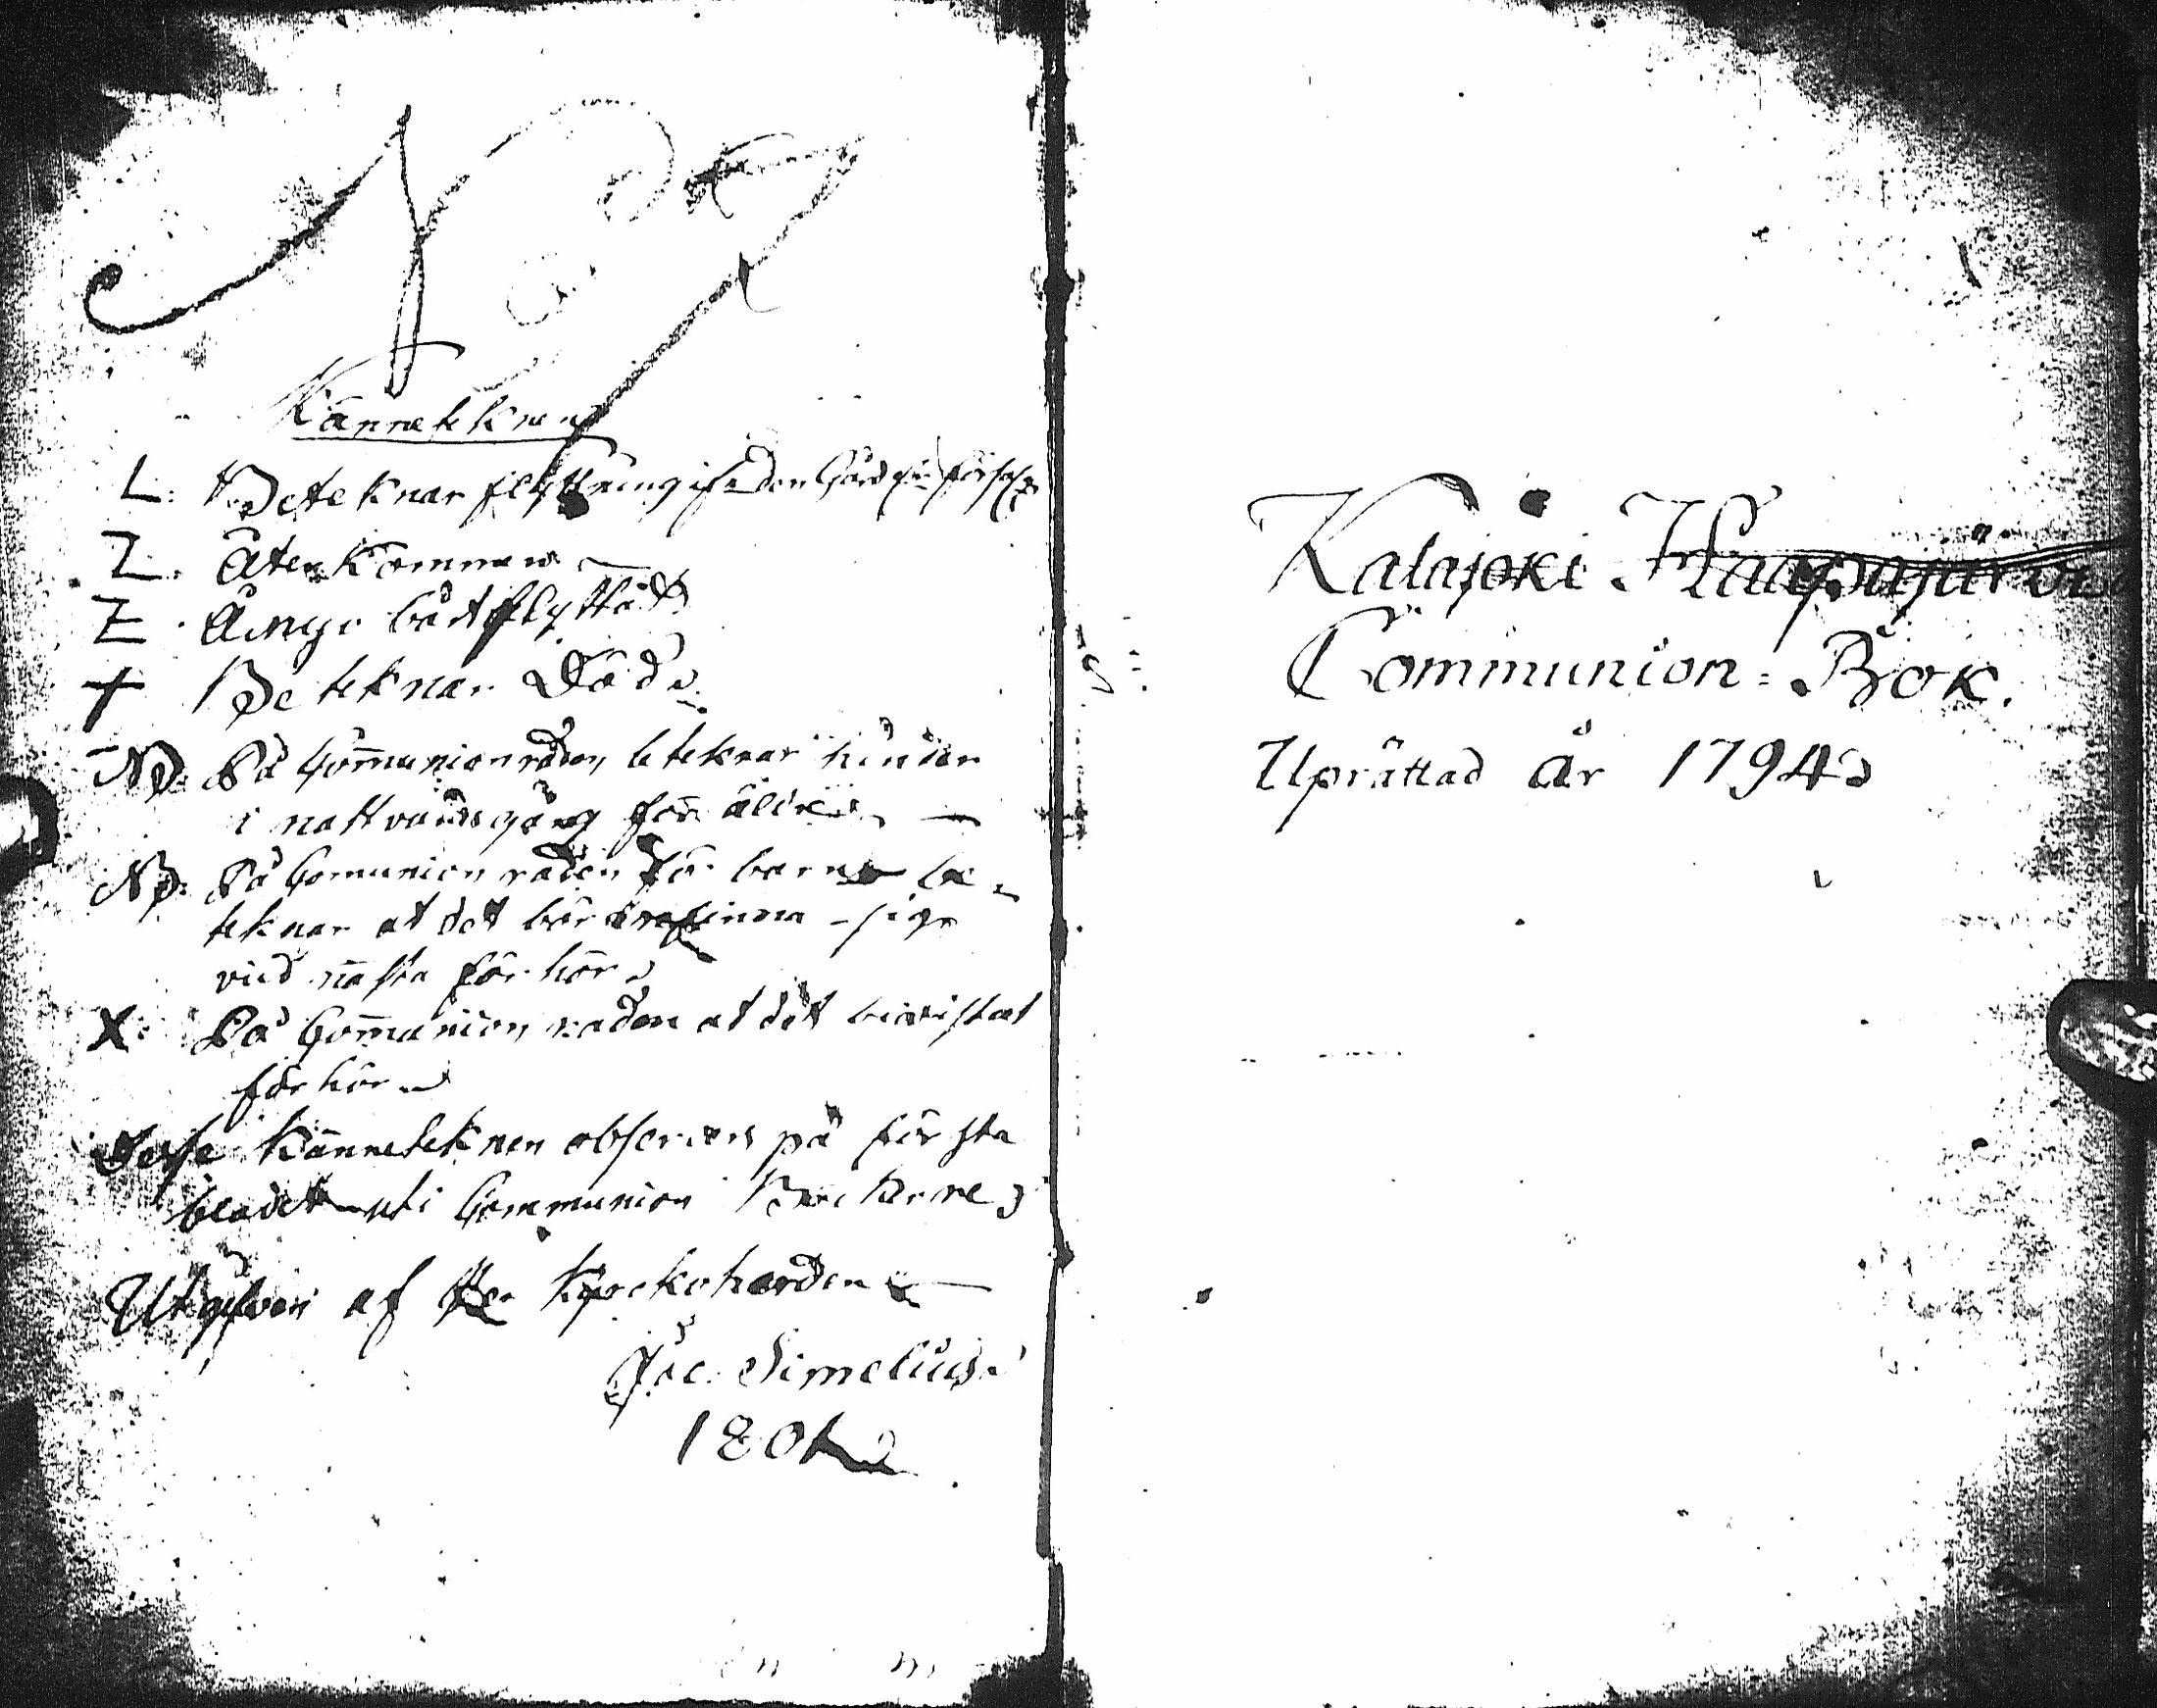 Känneteknen
L. Beteknar flyttning ifrån den Gård
Z. Återkommen
Z Å nyo bårtflyttad
† Beteknar Död.
NB: På Communionraden beteknar hinder
i nattvardsgång för äldre
NB: På Comunion raden för barn be=
teknar at det bör infinna sig
vid nästa förhör.
X: På Communion raden at det bivistat
förhör
Desse Känneteknen observeras på första
bladet uti Communion Böckerne
Utgifven af Herr Kyrckoherden
Jac. Simelius
180
Kalajoki Haapajärvi
Communion=Bok.
Uprättad år 1794